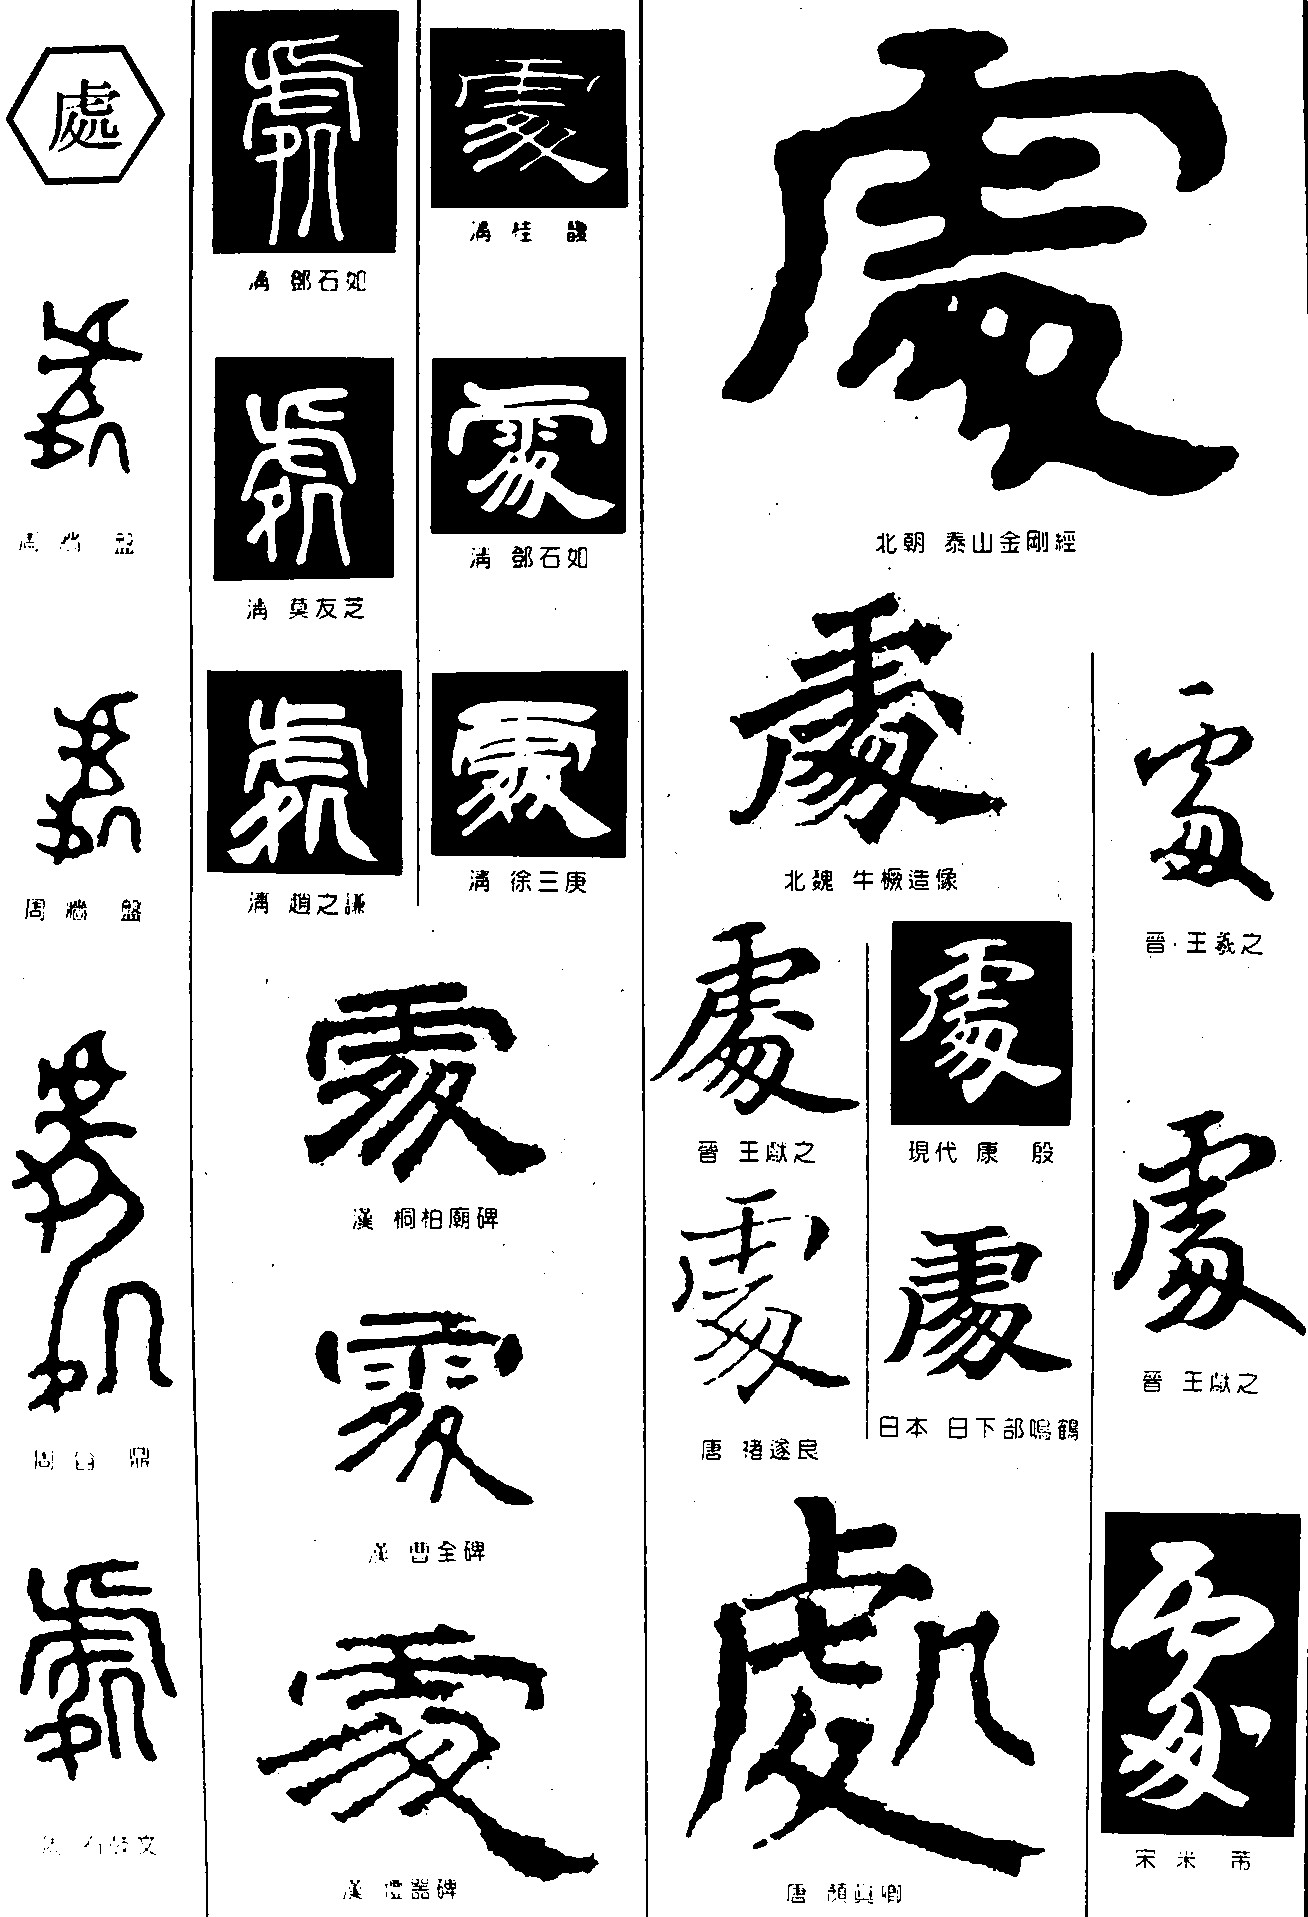 處
周 墻 盤
周 墻 盤
周 舀 鼎
周 石鼓文
清 鄧石如
清 莫友芝
清 趙之謙
清 桂 馥
清 鄧石如
清 徐三庚
漢 桐柏廟碑
漢 曹全碑
漢 禮器碑
北朝 泰山金剛經
北魏 牛橛造像
晉 王獻之
唐 褚遂良
現代 康 殷
日本 日下部鳴鶴
唐 顏真卿
晉 王羲之
晉 王獻之
宋 米 芾